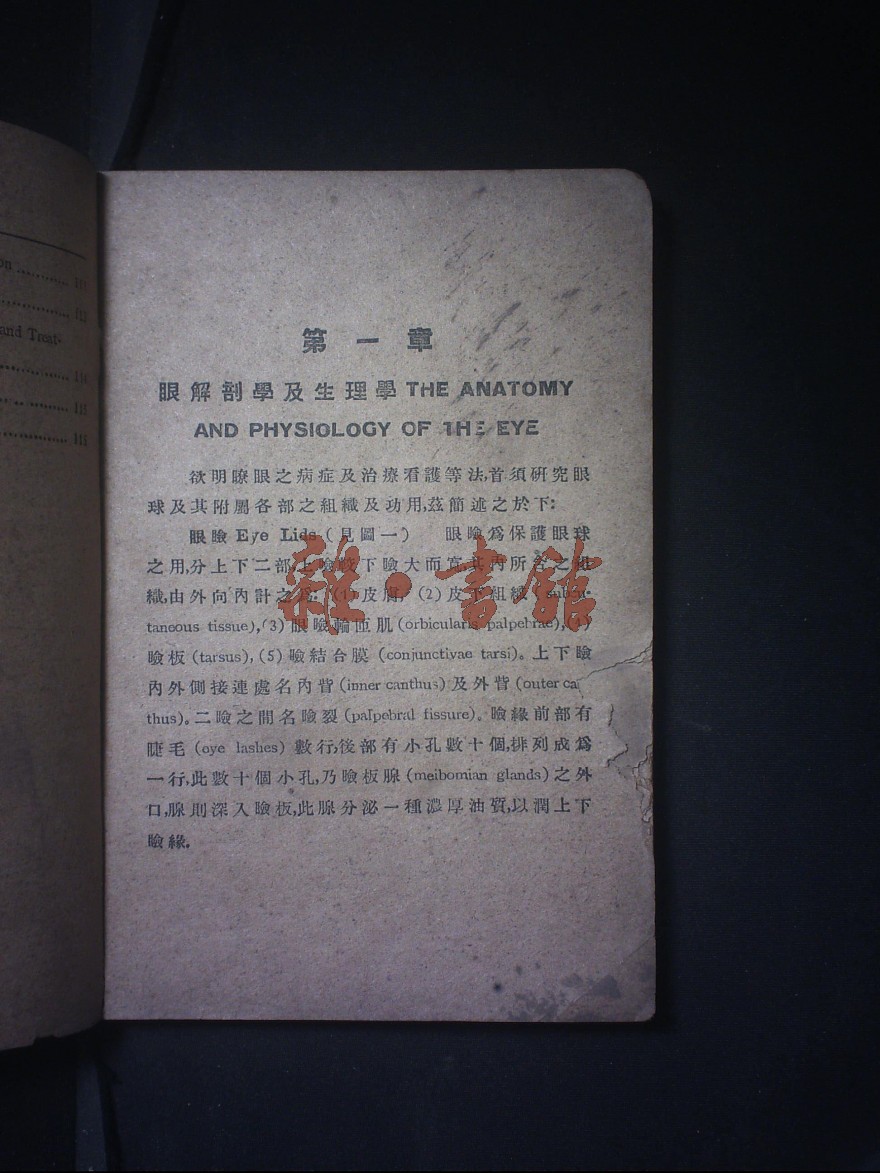 on .......... 111
.......... 112
and Treat-
.......... 114
.......... 115
.......... 115
第一章
眼解剖學及生理學 THE ANATOMY
AND PHYSIOLOGY OF THE EYE
欲明瞭眼之病症及治療看護等法,首須硏究眼
球及其附屬各部之組織及功用,茲簡述之於下:
眼瞼 Eye Lids (見圖一) 眼瞼爲保護眼球
之用,分上下二部,上瞼較下瞼大而寬,其內所含之組
織,由外向內計之爲: (1) 皮膚, (2) 皮下組織 (subcu-
taneous tissue), (3) 眼瞼輪匝肌 (orbicularis palpebrae), (4)
瞼板 (tarsus), (5) 瞼結合膜 (conjunctivae tarsi)。上下瞼
內外側接連處名內眥 (inner canthus) 及外眥 (outer can
thus)。二瞼之間名瞼裂 (palpebral fissure)。瞼緣前部有
睫毛 (eye lashes) 數行,後部有小孔數十個,排列成爲
一行,此數十個小孔,乃瞼板腺 (meibomian glands) 之外
口,腺則深入瞼板,此腺分泌一種濃厚油質,以潤上下
瞼緣.
雜·書館